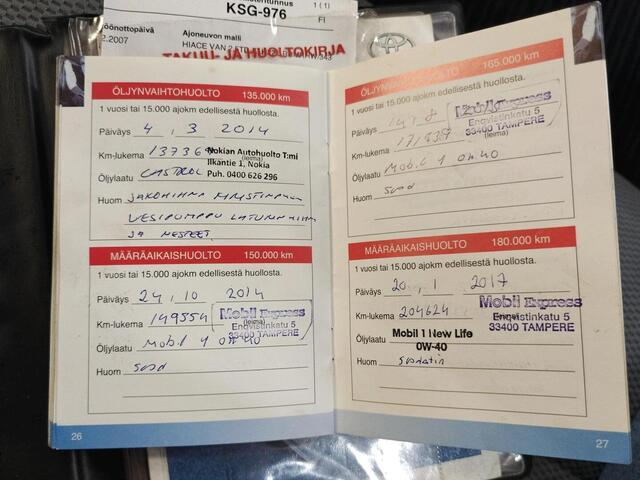 KSG-976
1(1)
FI
Ajoneuvon malli
2.2007
TAKUU- JA HUOLTOKIRJA
ÖLJYNVAIHTOHUOLTO 135.000 km
1 vuosi tai 15.000 ajokm edellisestä huollosta.
Päiväys 4 . 3 2014
Km-lukema (leima)
Nokian Autohuolto T:mi
Ilkantie 1, Nokia
Puh. 0400 626 296
Öljylaatu CASTROL
Huom JAKOHIHNA
VESIPUMPPU
JA NESTEET
MÄÄRÄAIKAISHUOLTO 150.000 km
1 vuosi tai 15.000 ajokm edellisestä huollosta.
Päiväys 24 . 10 2014
Km-lukema 149554 (leima)
Mobil Express
Enqvistinkatu 5
33400 TAMPERE
Öljylaatu Mobil 1 0W-40
Huom
26
ÖLJYNVAIHTOHUOLTO 165.000 km
1 vuosi tai 15.000 ajokm edellisestä huollosta.
Päiväys
Mobil Express
Enqvistinkatu 5
33400 TAMPERE
Km-lukema (leima)
Öljylaatu Mobil 1 0W-40
Huom
MÄÄRÄAIKAISHUOLTO 180.000 km
1 vuosi tai 15.000 ajokm edellisestä huollosta.
Päiväys 20 . 1 2017
Km-lukema 204624 (leima)
Mobil Express
Enqvistinkatu 5
33400 TAMPERE
Öljylaatu Mobil 1 New Life
0W-40
Huom
27